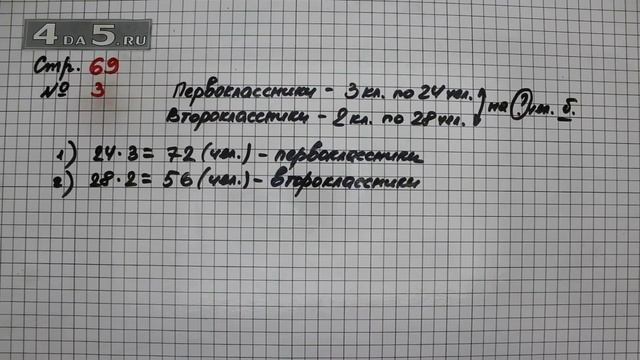 4 DA 5.RU
Стр. 69
№ 3
Первоклассники - 3 кл. по 24 чел.
Второклассники - 2 кл. по 28 чел.
на ? чел. б.
1) 24 · 3 = 72 (чел.) - первоклассники
2) 28 · 2 = 56 (чел.) - второклассники